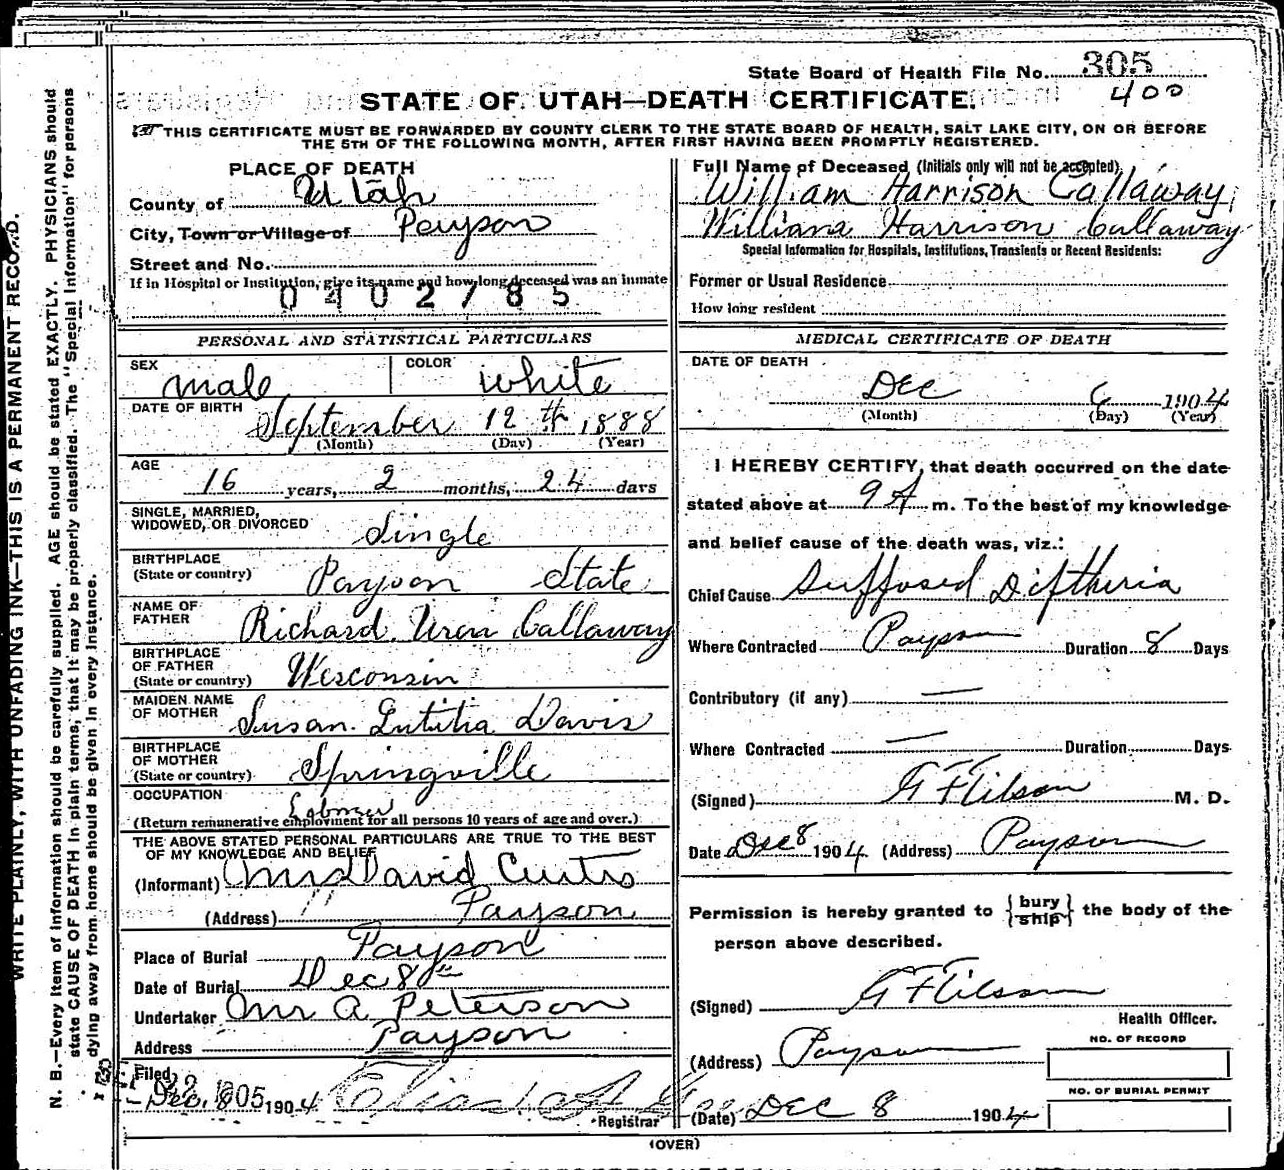 State Board of Health File No. 305
400
STATE OF UTAH—DEATH CERTIFICATE.
THIS CERTIFICATE MUST BE FORWARDED BY COUNTY CLERK TO THE STATE BOARD OF HEALTH, SALT LAKE CITY, ON OR BEFORE
THE 5TH OF THE FOLLOWING MONTH, AFTER FIRST HAVING BEEN PROMPTLY REGISTERED.
PLACE OF DEATH
County of Utah
City, Town or Village of Payson
Street and No.
If in Hospital or Institution, give its name and how long deceased was an inmate
0402785
PERSONAL AND STATISTICAL PARTICULARS
SEX male COLOR white
DATE OF BIRTH September 12th 1888
(Month) (Day) (Year)
AGE
16 years, 2 months, 24 days
SINGLE, MARRIED,
WIDOWED, OR DIVORCED Single
BIRTHPLACE
(State or country) Payson State
NAME OF
FATHER Richard Callaway
BIRTHPLACE
OF FATHER
(State or country) Wesconsin
MAIDEN NAME
OF MOTHER Susan Lutitia Davis
BIRTHPLACE
OF MOTHER
(State or country) Springville
OCCUPATION
(Return remunerative employment for all persons 10 years of age and over.)
THE ABOVE STATED PERSONAL PARTICULARS ARE TRUE TO THE BEST
OF MY KNOWLEDGE AND BELIEF
(Informant) Mrs David Curtis
(Address) " Payson
Place of Burial Payson
Date of Burial Dec 8th
Undertaker Mr A Peterson
Address Payson
Filed
Dec. 8 1904
Registrar
Full Name of Deceased (Initials only will not be accepted)
William Harrison Callaway
William Harrison Callaway
Special Information for Hospitals, Institutions, Transients or Recent Residents:
Former or Usual Residence
How long resident
MEDICAL CERTIFICATE OF DEATH
DATE OF DEATH
Dec 6 1904
(Month) (Day) (Year)
I HEREBY CERTIFY, that death occurred on the date
stated above at 9 A m. To the best of my knowledge
and belief cause of the death was, viz.:
Chief Cause Suffosed Diftheria
Where Contracted Payson Duration 8 Days
Contributory (if any) —
Where Contracted — Duration Days
(Signed) M. D.
Date Dec 8 1904 (Address) Payson
Permission is hereby granted to {bury ship} the body of the
person above described.
(Signed)
Health Officer.
(Address) Payson
NO. OF RECORD
NO. OF BURIAL PERMIT
(Date) Dec 8 1904
(OVER)
WRITE PLAINLY, WITH UNFADING INK—THIS IS A PERMANENT RECORD.
N. B.—Every item of information should be carefully supplied. AGE should be stated EXACTLY. PHYSICIANS should
state CAUSE OF DEATH in plain terms, that it may be properly classified. The "Special Information" for persons
dying away from home should be given in every instance.